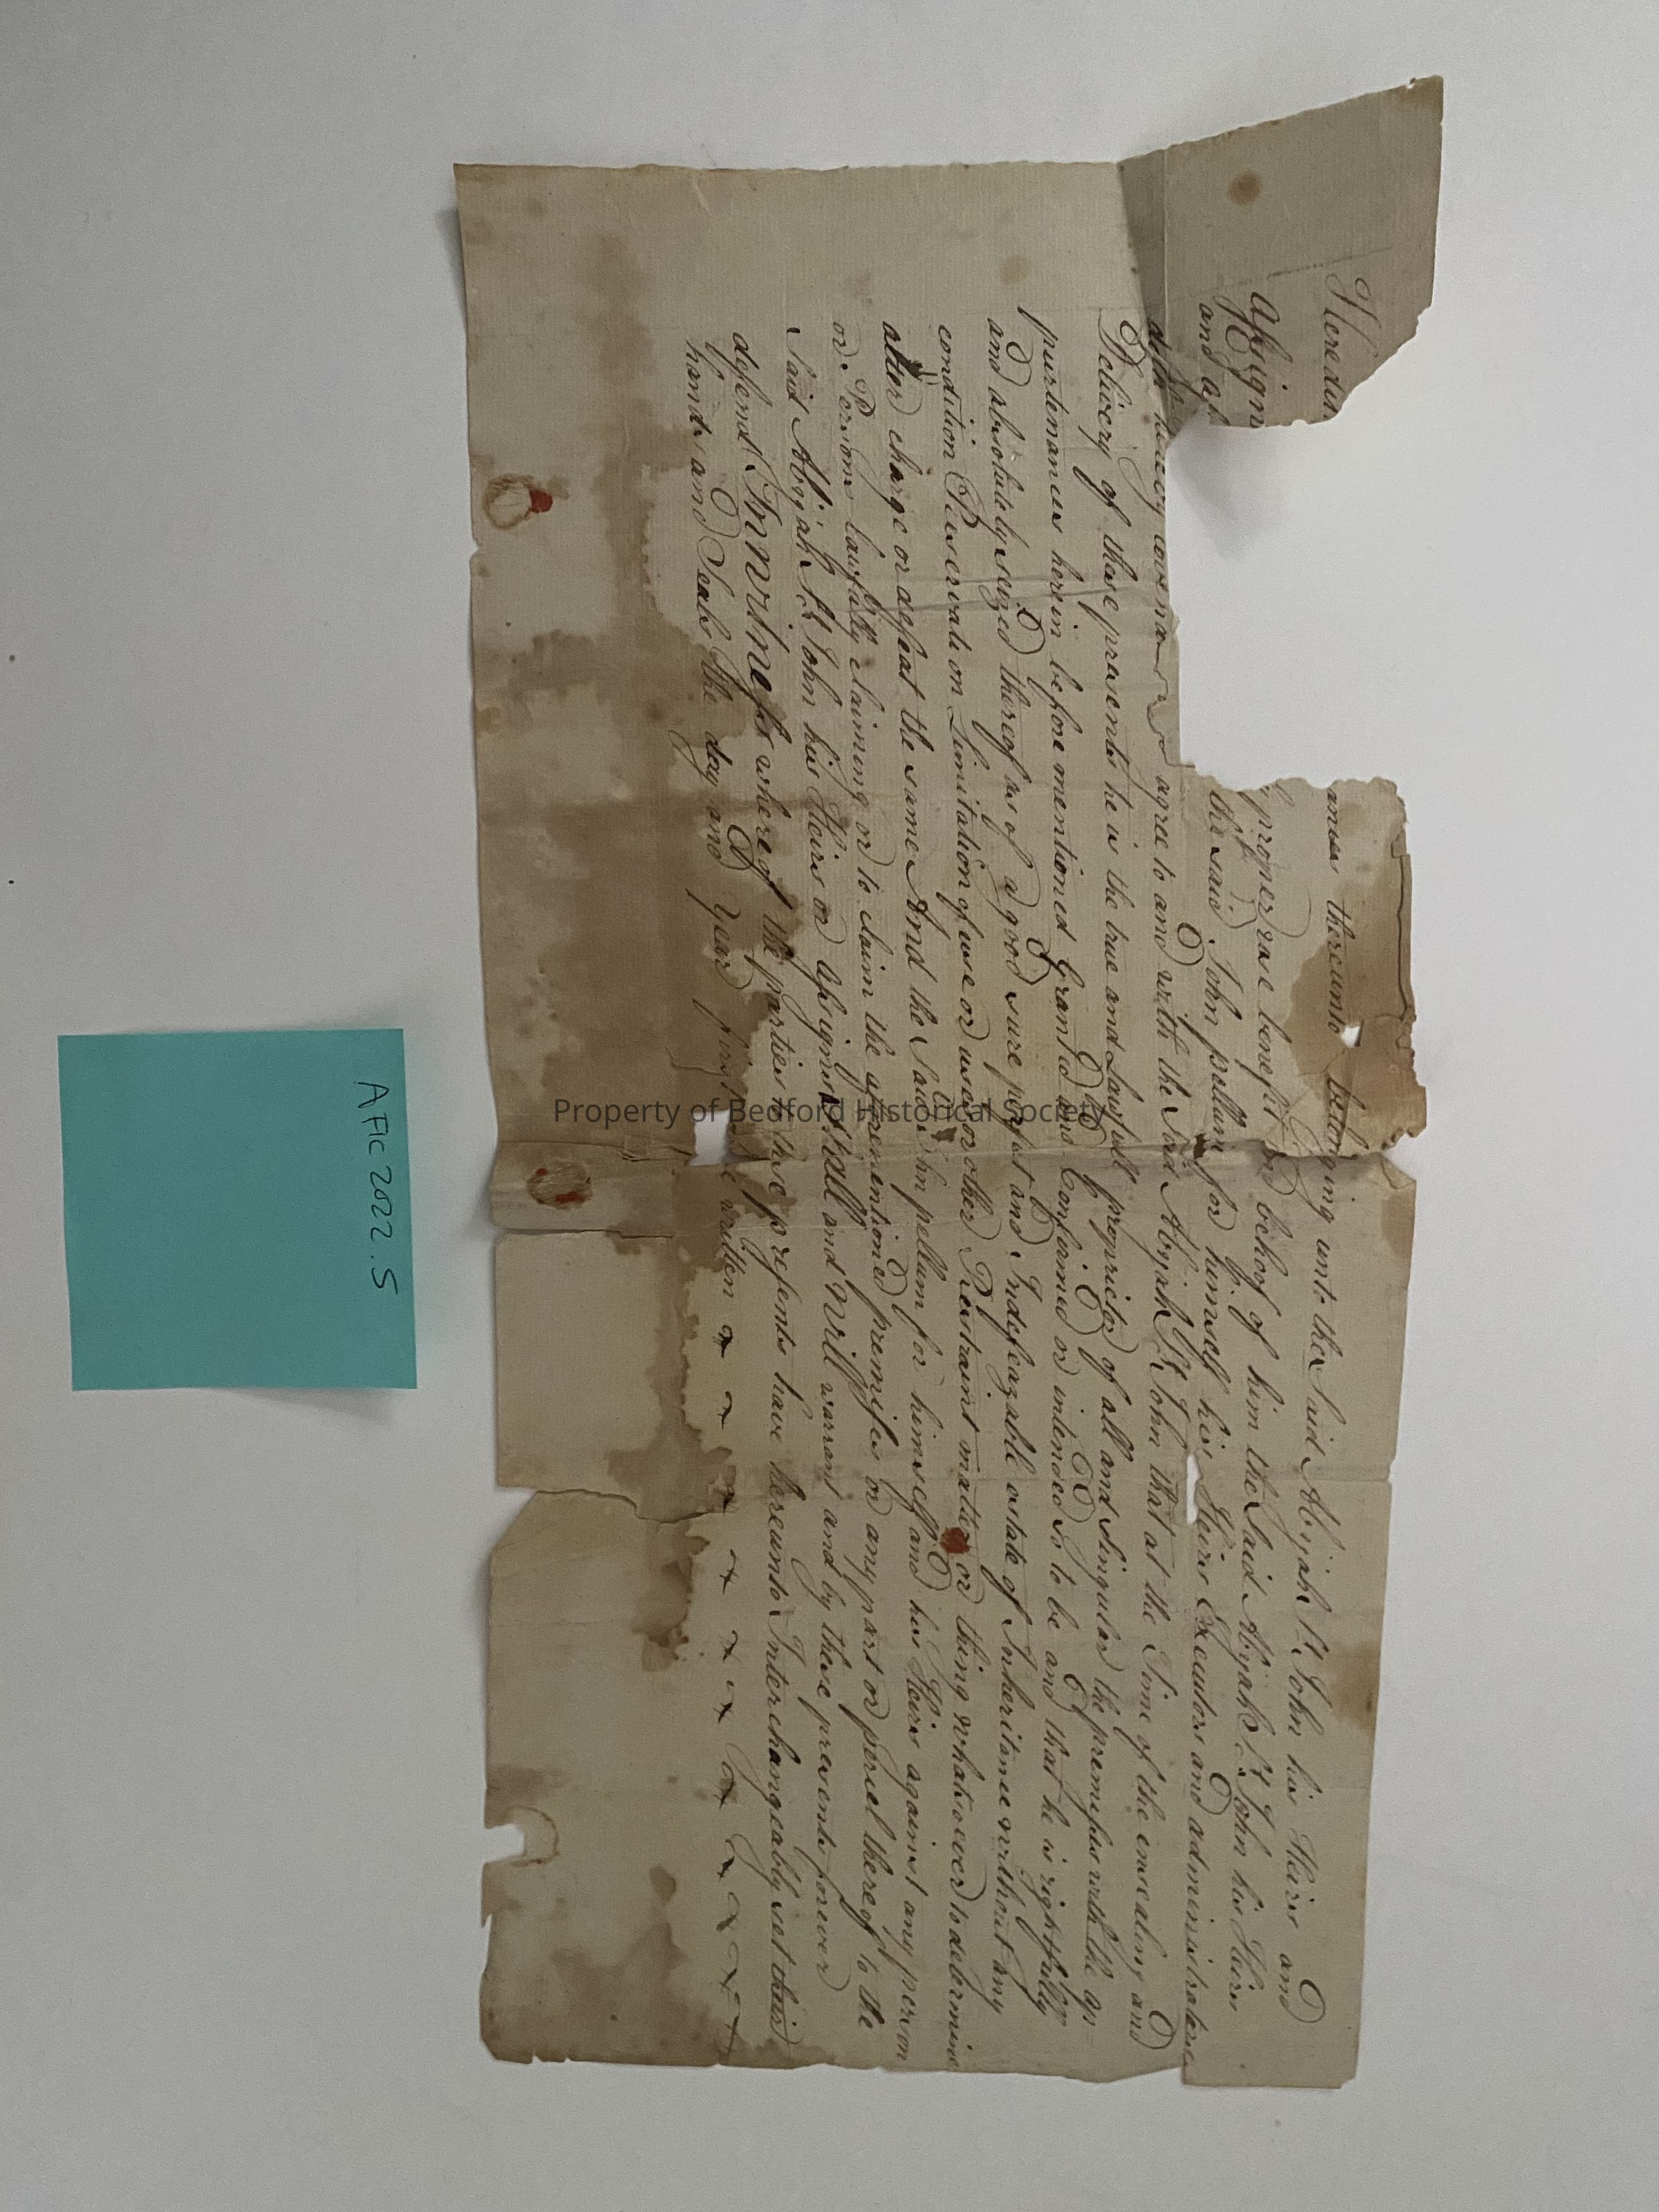 Heredit
ances thereunto belonging unto the Said Abijah St John his Heirs and
Assigns
proper use benefit and behoof of him the Said Abijah St John his Heirs
and as
the said John pellum for himself his Heirs Executors and administrators
hereby covenan
agree to and with the Said Abijah St John that at the Time of the ensealing and
Delivery of these presents he is the true and Lawfull proprietor of all and Singular the premises with the ap
purtenances herein before mentioned Granted and Confirmed or intended So to be and that he is rightfully
and absolutely seized thereof as of a good sure perfect and Indefeazable estate of Inheritance without any
condition Reservation Limitation of use or uses or other Restraint matter or thing whatsoever to determine
alter charge or defeat the same And the Said John pellum for himself and his Heirs against any person
or Persons lawfully claiming or to claim the aforementioned premises or any part or parcel thereof to the
Said Abijah St John his Heirs or Assigns Shall and Will warrant and by these presents forever
defend In Witness whereof the parties to these presents have hereunto Interchangeably set their
hands and Seals the day and Year first written
Property of Bedford Historical Society
AFIC 2022.5